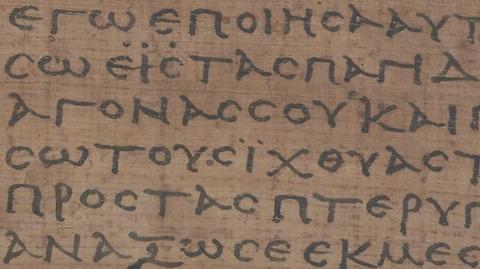 ΕΓωΕΠΟΙΗϹΑΑΥΤ
ϹωΕΪϹΤΑϹΠΑΓΙΔ
ΑΓΟΝΑϹϹΟΥΚΑΙΠ
ϹωΤΟΥϹΪΧΘΥΑϹΤ
ΠΡΟϹΤΑϹΠΤΕΡΥΓ
ΑΝΑΞωϹΕΕΚΜΕϹ